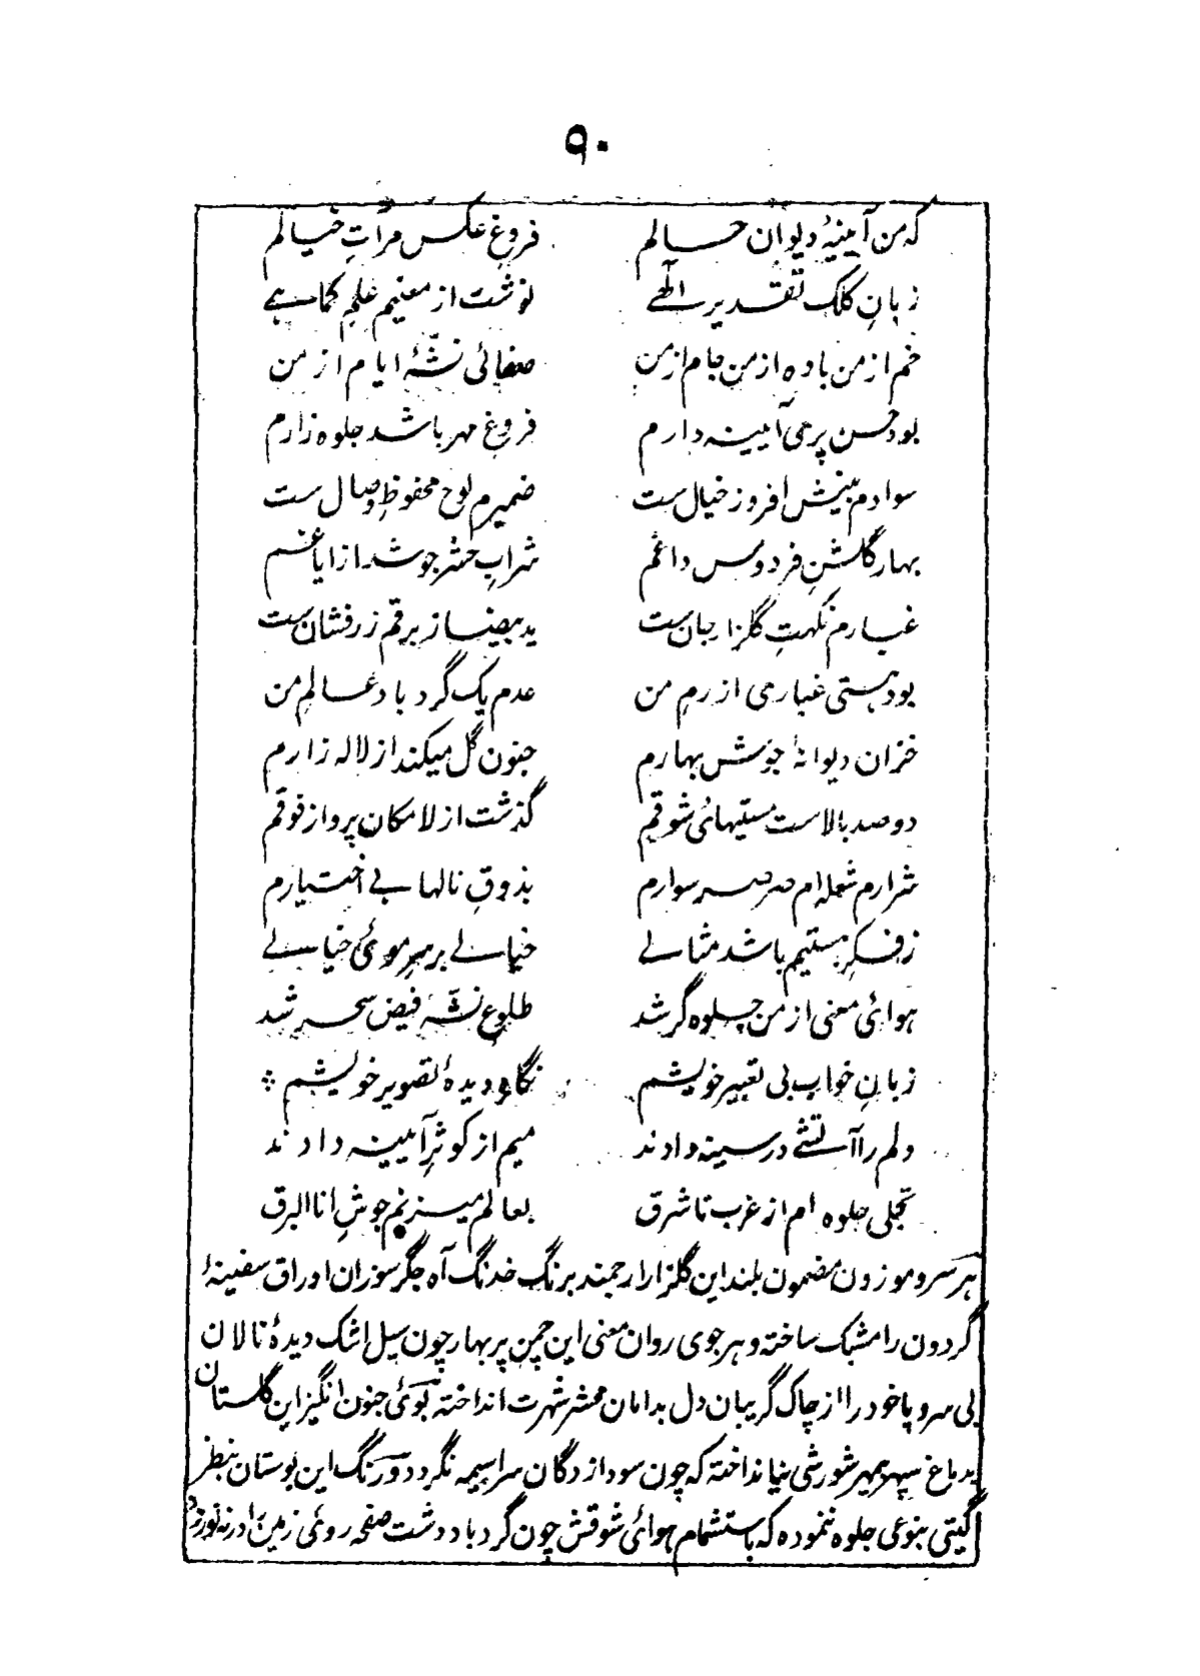 ۹۰
که من آیینهٔ دیوان حسالم فروغِ عکس مرآتِ خیالم
زبانِ کلک تقدیر الٰهے نوشت از معنیم علمِ کماہے
خم از من باده از من جام از من صفائی نشهٔ ایام از من
بود حسن پرمی آیینه دارم فروغِ مهر باشد جلوه زارم
سوادم بینش افروز خیال ست ضمیرم لوح محفوظِ وصال ست
بهار گلشنِ فردوس داغم شرابِ حشر جوشد از ایاغم
غبارم نکهتِ گلزار جان ست ید بیضا ز برقم زرفشان ست
بود هستی غباری از رمِ من عدم یک گرد باد عالمِ من
خزان دیوانهٔ جوشِ بهارم جنون گل میکند از لاله زارم
دو صد بالاست مستیهائی شوقم گذشت از لامکان پرواز فوقم
شرارم شعله ام صرصر سوارم بذوقِ نالها بے اختیارم
ز فکرِ هستیم باشد مثالے خیالے بر سرِ موئی خیالے
هوائی معنی از من جلوه گر شد طلوع نشهٔ فیض سحر شد
زبانِ خواب بی تعبیر خویشم نگاه دیدهٔ تصویر خویشم
دلم را آتشے در سینه دادند میم از کوثرِ آیینه دادند
تجلی جلوه ام از غرب تا شرق بعالم میزنم جوشِ انا البرق
هر سرو موزون مضمون بلند این گلزار ارجمند برنگ خدنگ آه جگر سوزان اوراق سفینهٔ
گردون را مشبک ساخته و هر جوی روان معنی این چمن پر بهار چون سیل اشک دیدهٔ نالان
بی سر و پا خود را از چاک گریبان دل بدامان محشر شهرت انداخته بوئی جنون انگیز این گلستان
بدماغ سپهر مهر شورشی نیانداخته که چون سودازدگان سراسیمه نگردد و رنگ این بوستان بنظر
گیتی بنوعی جلوه ننموده که باستشمام هوائی شوقش چون گرد باد دشت صفحه روئی زمین را در نه نوردد